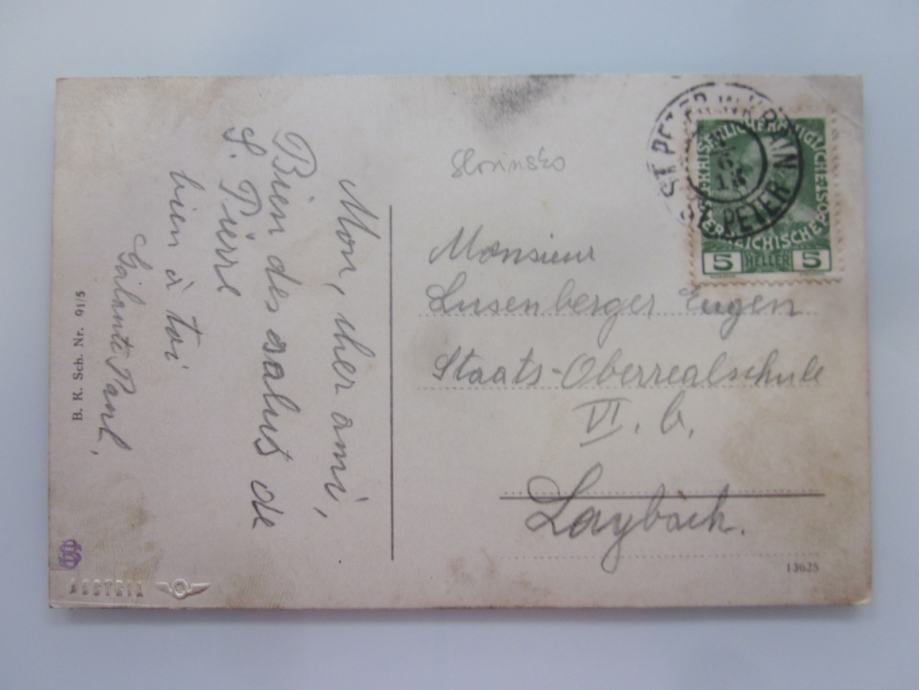 Mon, cher ami,
Bien des saluts de
S. Pierre
bien à toi
Paul.
B. K. Sch. Nr. 91/5
AUSTRIA
Slovinsko
ST. PETER IN KRAIN
ST. PETER IN
KAISERLICHE KÖNIGLICHE
ÖSTERREICHISCHE POST
5 HELLER 5
Monsieur
Lusenberger Eugen
Staats-Oberrealschule
VI. b.
Laybach.
13625